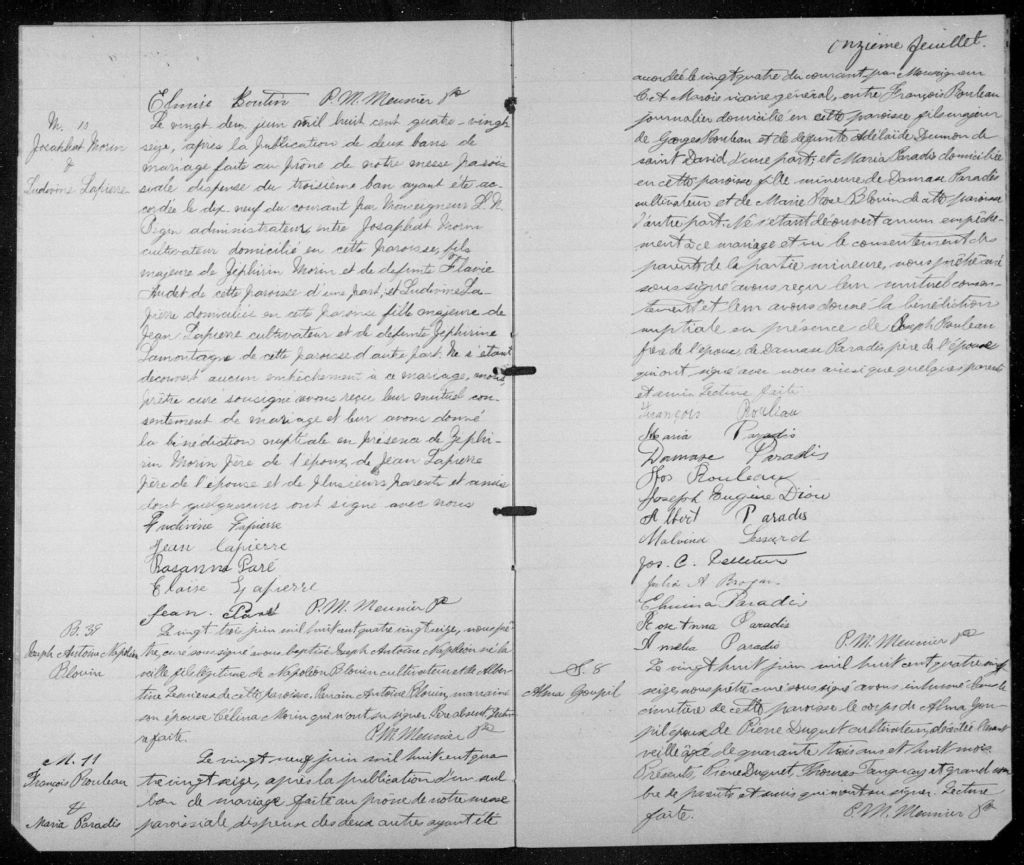 Elmire Boutin P. M. Meunier Ptre
M. 10
Josaphat Morin
&
Ludivine Lapierre
Le vingt deux juin mil huit cent quatre-vingt
seize, après la publication de deux bans de
mariage faite au prône de notre messe parois
siale dispense du troisième ban ayant été ac-
cordée le dix-neuf du courant par Monseigneur L. N.
Begin administrateur, entre Josaphat Morin
cultivateur domicilié en cette paroisse, fils
majeure de Zéphirin Morin et de defunte Flavie
Audet de cette paroisse d'une part, et Ludivine La-
pierre domiciliée en cette paroisse fille majeure de
Jean Lapierre cultivateur et de defunte Zephirine
Lamontagne de cette paroisse d'autre part. Ne s'étant
decouvert aucun empêchement à ce mariage, nous
prêtre curé sousigné avons reçu leur mutuel con-
sentement de mariage et leur avons donné
la bénédiction nuptiale en présence de Zephi-
rin Morin père de l'époux, de Jean Lapierre
père de l'épouse et de plusieurs parents et amis
dont quelques uns ont signé avec nous
Ludivine Lapierre
Jean Lapierre
Rosanna Paré
Eloïse Lapierre
Jean. Paré P. M. Meunier Ptre
B. 38
Joseph Antoine Napoléon
Blouin
Le vingt trois juin mil huit cent quatre vingt seize, nous prê
tre, curé sous signé avons baptisé Joseph Antoine Napoléon né la
veille fils légitime de Napoléon Blouin cultivateur et de Alber
tine Lemieux de cette paroisse. Parrain Antoine Blouin, marraine
son épouse Célina Morin qui n'ont su signer. Père absent. Lectu
re faite. P. M. Meunier Ptre
M. 11
François Rouleau
&
Maria Paradis
Le vingt neuf juin mil huit cent qua
tre vingt seize, après la publication d'un seul
ban de mariage faite au prône de notre messe
paroissiale, dispense des deux autres ayant été
onzième feuillet.
accordée le vingt quatre du courant, par Monseigneur
C. A. Marois vicaire général, entre François Rouleau
journalier domicilié en cette paroisse fils majeur
de Georges Rouleau et de defunte Adelaide Dumon de
saint David d'une part; et Maria Paradis domiciliée
en cette paroisse fille mineure de Damase Paradis
cultivateur et de Marie Rose Blouin de cette paroisse
d'autre part. Ne s'étant découvert aucun empêche-
ment à ce mariage et vu le consentement des
parents de la partie mineure, nous prêtre curé
sous signé avons reçu leur mutuel consen-
tement et leur avons donné la bénédiction
nuptiale en présence de Joseph Rouleau
frère de l'époux, de Damase Paradis, père de l'épouse
qui ont, signé avec nous ainsi que quelques parents
et amis Lecture faite
François Rouleau
Maria Paradis
Damase Paradis
Jos Rouleau
Joseph Eugène Dion
Albert Paradis
Malvina Lessard
Jos. C. Pelletier
Julia A
Elmina Paradis
Rose Anna Paradis
Amélia Paradis P. M. Meunier Ptre
S. 8
Alma Goupil
Le vingt huit juin mil huit cent quatre vingt
seize, nous prêtre curé sous signé avons inhumé dans le
cimetière de cette paroisse le corps de Alma Gou-
pil épouse de Pierre Duquet cultivateur, décédée l'avant
veille âgée de quarante trois ans et huit mois.
Présents, Pierre Duquet, Thomas Tanguay et grand nom
bre de parents et amis qui n'ont su signer. Lecture
faite. P. M. Meunier Ptre